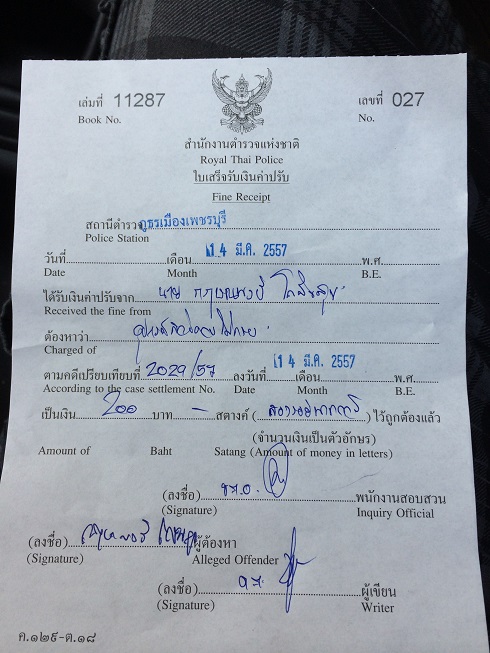 เล่มที่ 11287 เลขที่ 027
Book No. No.
สำนักงานตำรวจแห่งชาติ
Royal Thai Police
ใบเสร็จรับเงินค่าปรับ
Fine Receipt
สถานีตำรวจ ภูธรเมืองเพชรบุรี
Police Station
วันที่ เดือน 14 มี.ค. 2557 พ.ศ.
Date Month B.E.
ได้รับเงินค่าปรับจาก นาย
Received the fine from
ต้องหาว่า
Charged of
ตามคดีเปรียบเทียบที่ 2029/57 ลงวันที่ 14 มี.ค. 2557 เดือน พ.ศ.
According to the case settlement No. Date Month B.E.
เป็นเงิน 200 บาท - สตางค์ ( สองร้อยบาท ) ไว้ถูกต้องแล้ว
(จำนวนเงินเป็นตัวอักษร)
Amount of Baht Satang (Amount of money in letters)
(ลงชื่อ) พนักงานสอบสวน
(Signature) Inquiry Official
(ลงชื่อ) ผู้ต้องหา
(Signature) Alleged Offender
(ลงชื่อ) ผู้เขียน
(Signature) Writer
ค.๑๒๙-ต.๑๘